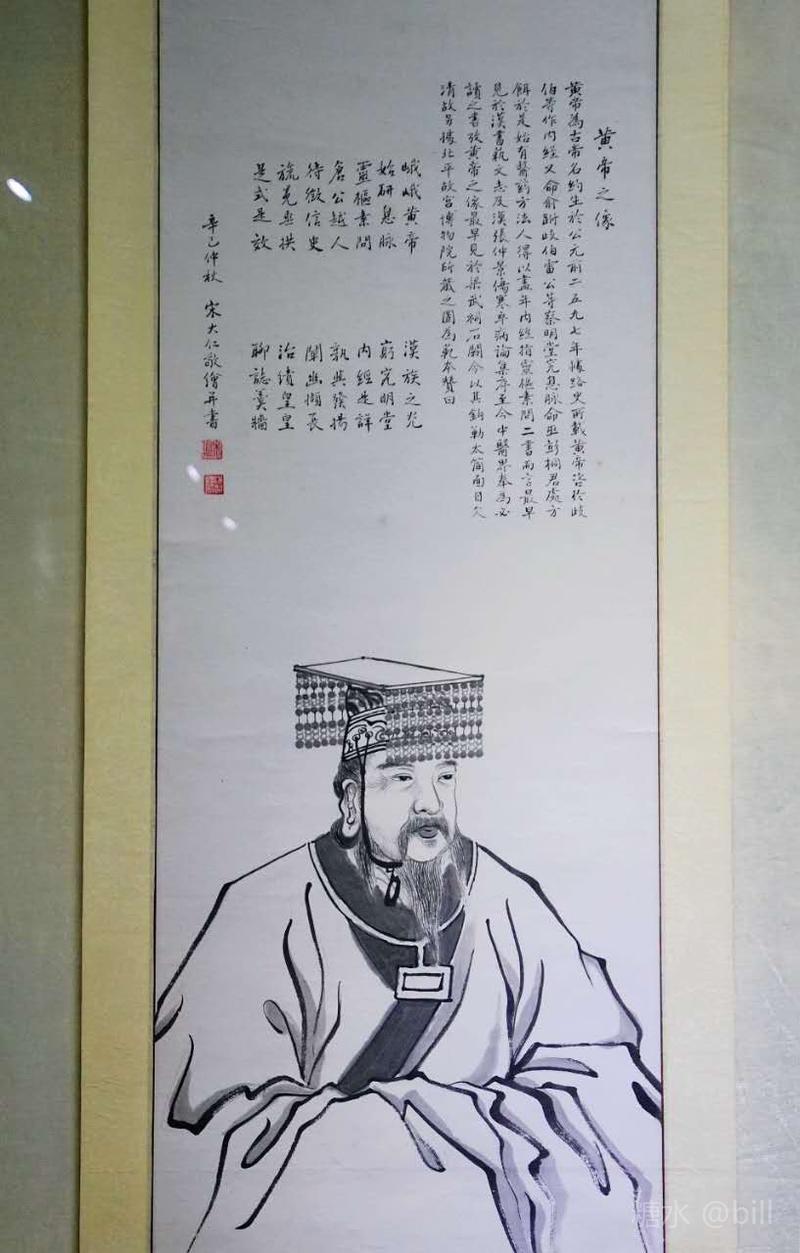 黃帝之像
黃帝為古帝名約生於公元前二五九七年據路史所載黃帝咨於岐
伯等作內經又命俞跗岐伯雷公等察明堂究息脉命巫彭桐君處方
餌於是始有醫葯方法人得以盡年內經指靈樞素問二書而言最早
見於漢書藝文志及漢張仲景傷寒卒病論集序至今中醫界奉為必
讀之書攷黃帝之像最早見於梁武祠石闕今以其鈎勒太簡面目欠
清故另據北平故宮博物院所藏之圖為範本贊曰
峨峨黃帝 漢族之光
始研息脉 窮究明堂
靈樞素問 內經是詳
倉公越人 孰與發揚
待徵信史 闡幽擷長
旒冕垂拱 治績皇皇
是式是效 聊誌羹牆
辛巳仲秋 宋大仁敬繪并書
糖水 @bill